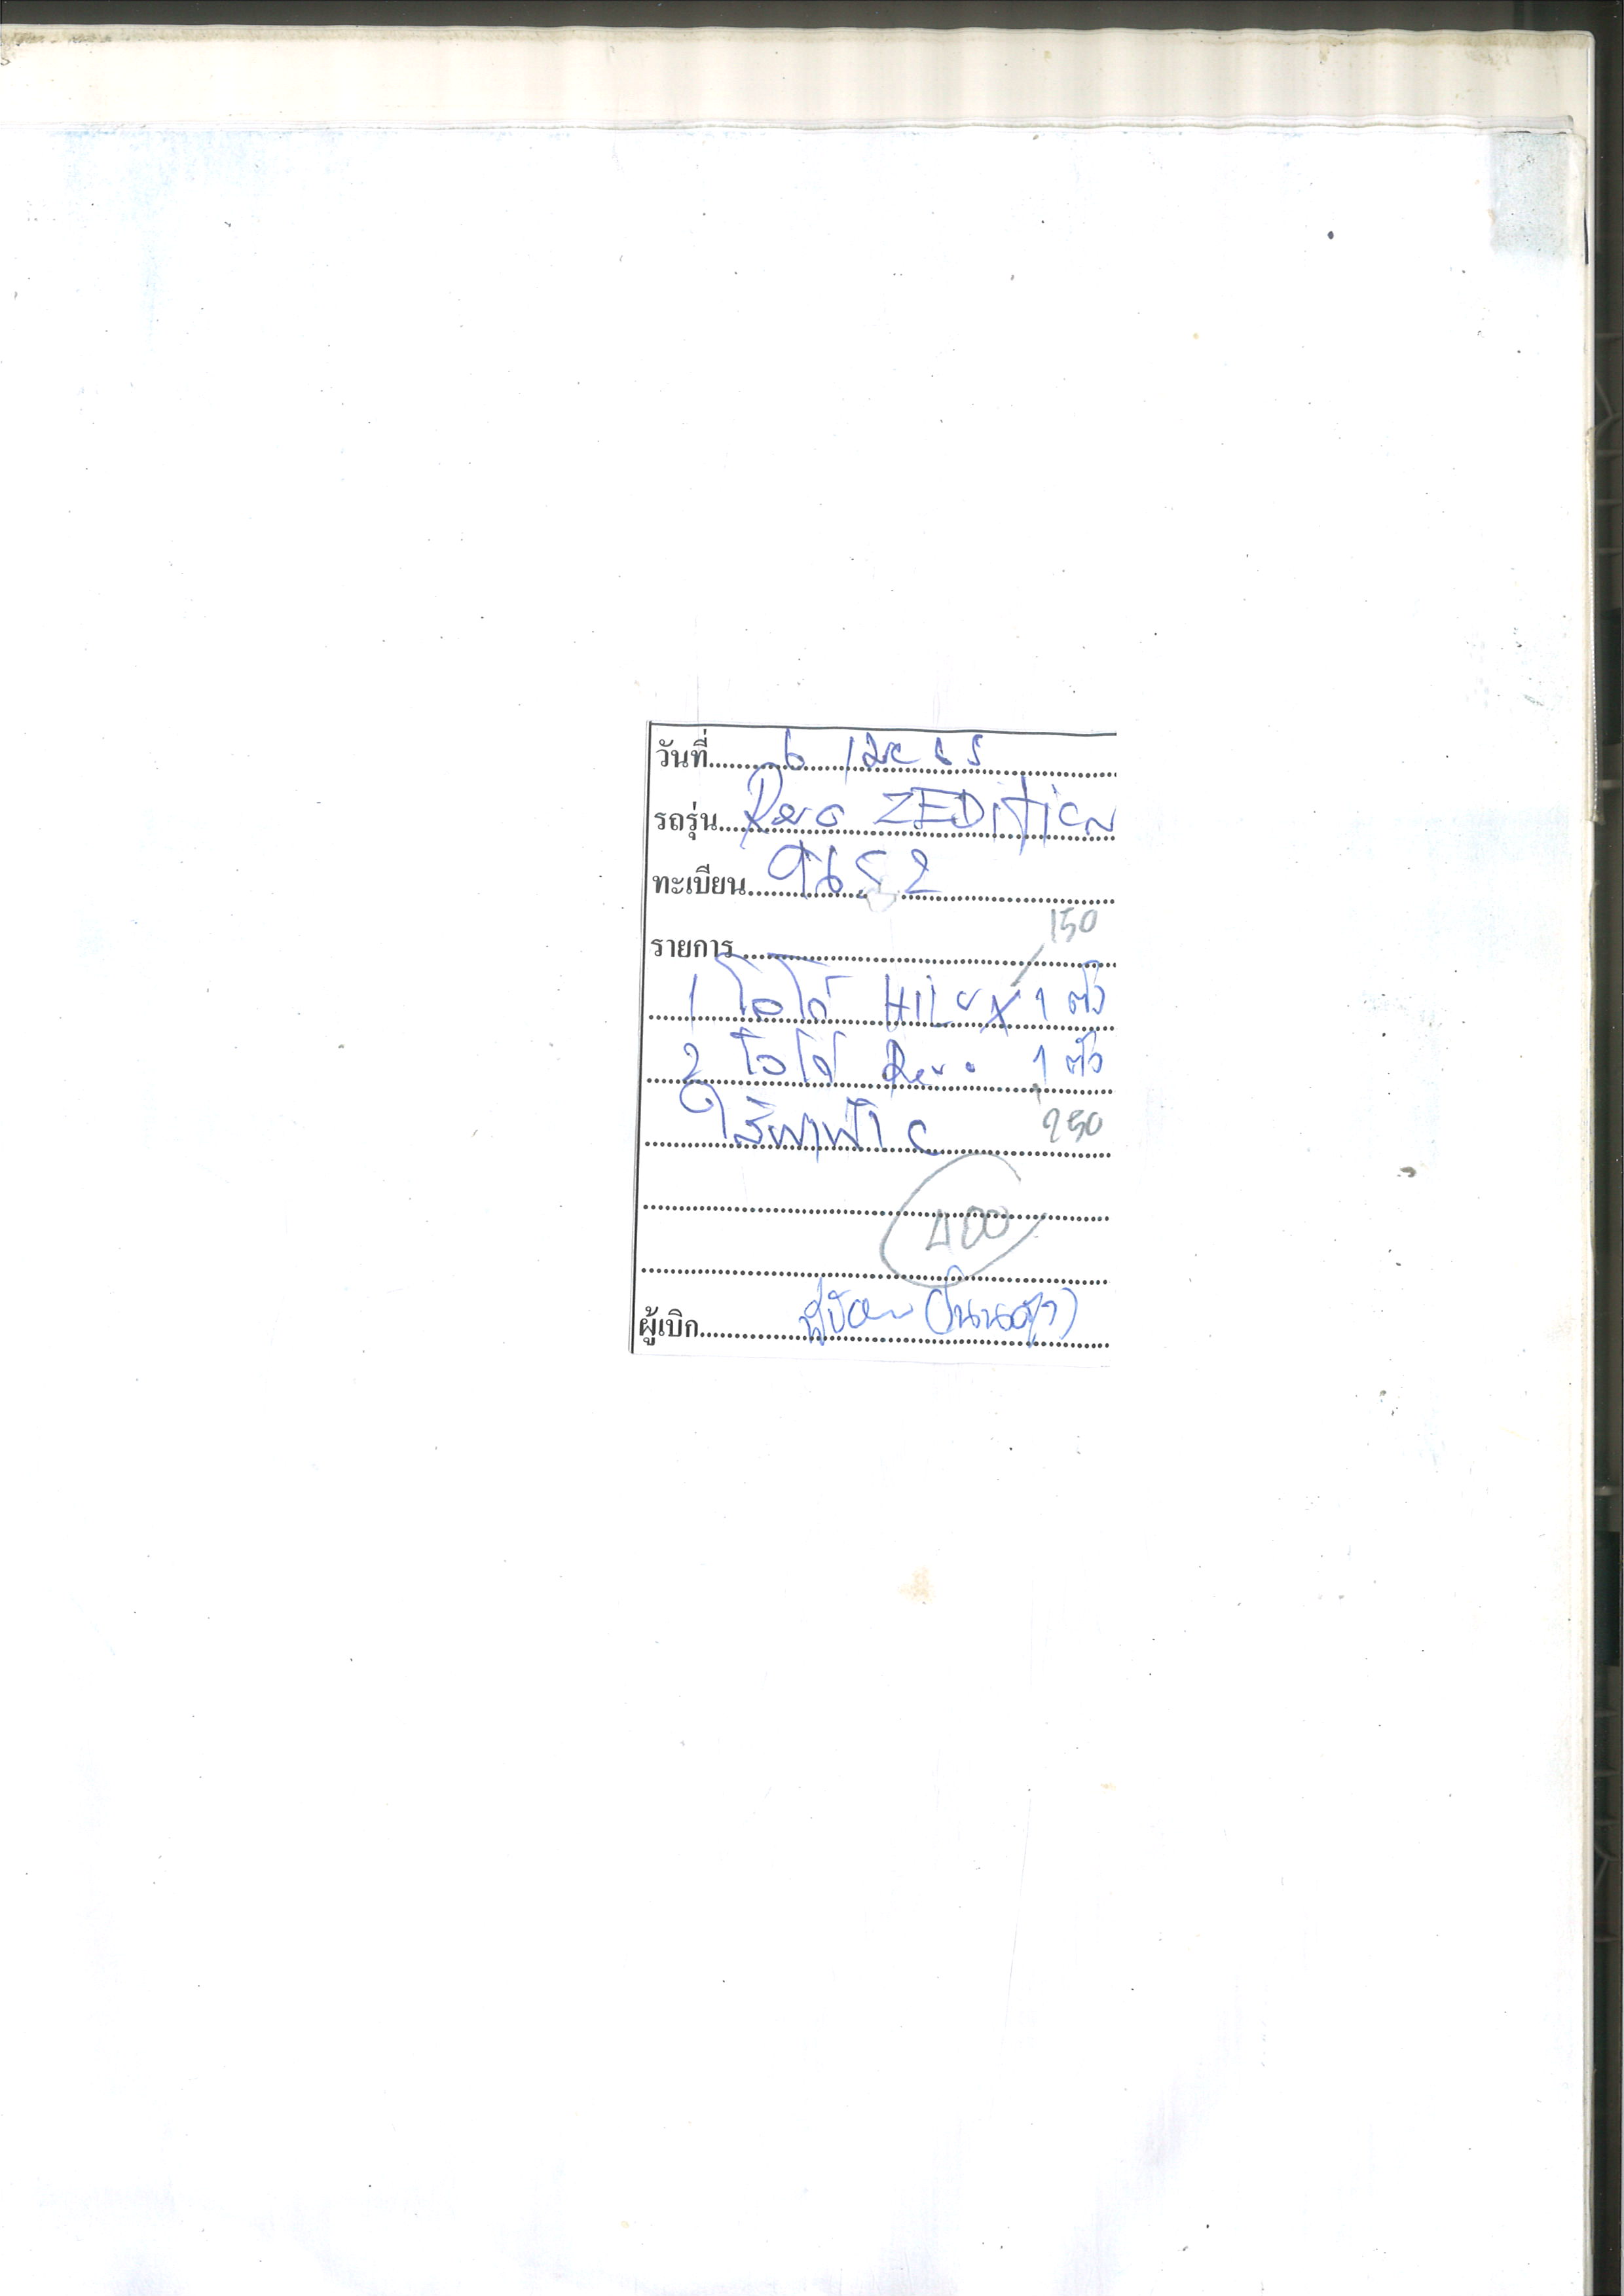 วันที่ 6 เมย 65
รถรุ่น Revo ZEDition
ทะเบียน 9652
150
รายการ
1 โลโก้ HILUX 1 ตัว
2 โลโก้ Revo 1 ตัว
250
400
ผู้เบิก